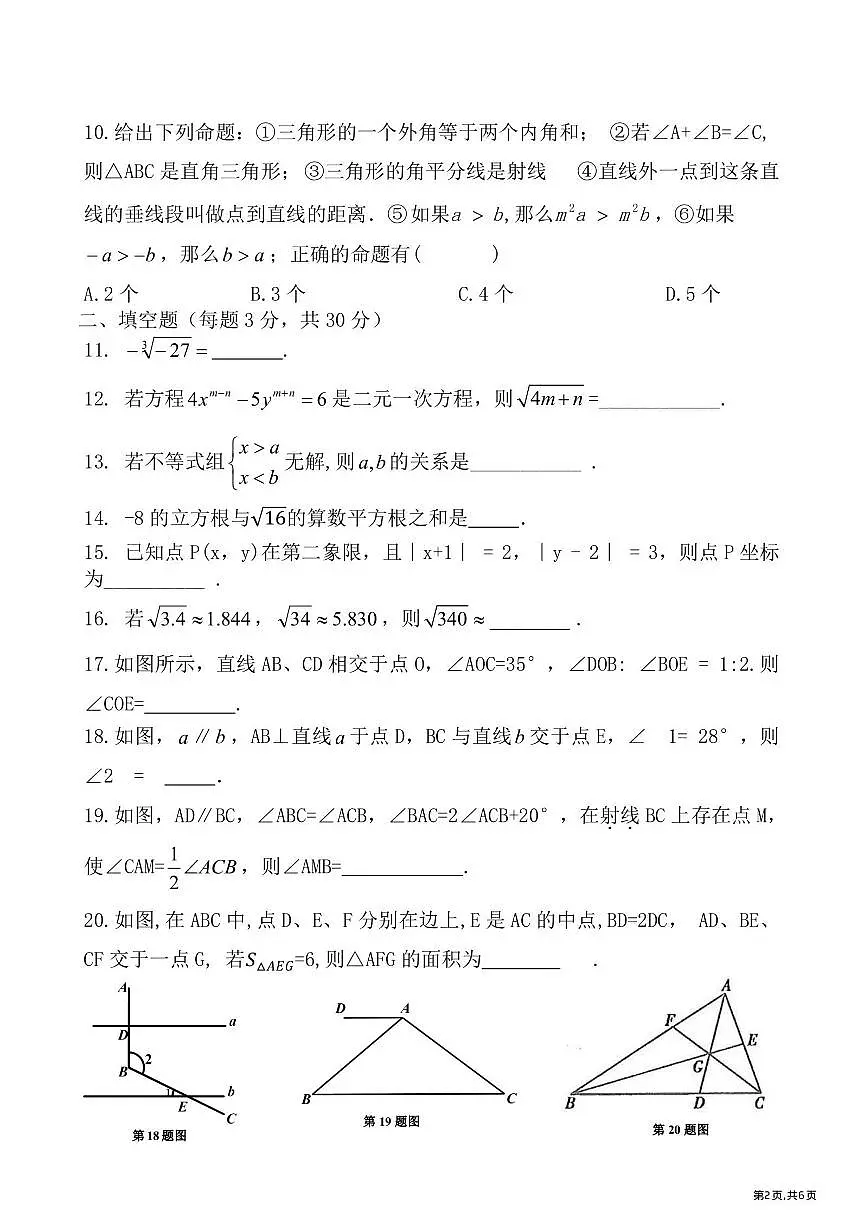 10.给出下列命题：①三角形的一个外角等于两个内角和； ②若∠A+∠B=∠C,
则△ABC 是直角三角形；③三角形的角平分线是射线 ④直线外一点到这条直
线的垂线段叫做点到直线的距离．⑤如果a > b,那么m²a > m²b，⑥如果
－a>－b，那么b>a；正确的命题有( )
A.2 个 B.3 个 C.4 个 D.5 个
二、填空题（每题 3 分，共 30 分）
11. －∛－27 = ______.
12. 若方程 4x^{m−n} −5y^{m+n} = 6 是二元一次方程，则 √(4m+n) =____________.
13. 若不等式组 {x>a x<b 无解,则 a,b 的关系是___________ .
14. -8 的立方根与√16的算数平方根之和是_____.
15. 已知点 P(x，y)在第二象限，且｜x+1｜ = 2，｜y - 2｜ = 3，则点 P 坐标
为__________ .
16. 若 √3.4 ≈1.844，√34 ≈5.830，则 √340 ≈ ________ .
17.如图所示，直线 AB、CD 相交于点 O，∠AOC=35°，∠DOB: ∠BOE = 1:2.则
∠COE=_________.
18.如图，a∥b，AB⊥直线a于点 D，BC 与直线b交于点 E，∠ 1= 28°，则
∠2 = _____.
19.如图，AD∥BC，∠ABC=∠ACB，∠BAC=2∠ACB+20°，在射线 BC 上存在点 M，
使∠CAM=1/2∠ACB，则∠AMB=____________.
20.如图,在 ABC 中,点 D、E、F 分别在边上,E 是 AC 的中点,BD=2DC， AD、BE、
CF 交于一点 G，若S△AEG=6,则△AFG 的面积为________ .
A
D
a
B
2
1
E
b
C
第18题图
D
A
B
C
第 19 题图
A
F
E
G
B
D
C
第 20 题图
第2页,共6页